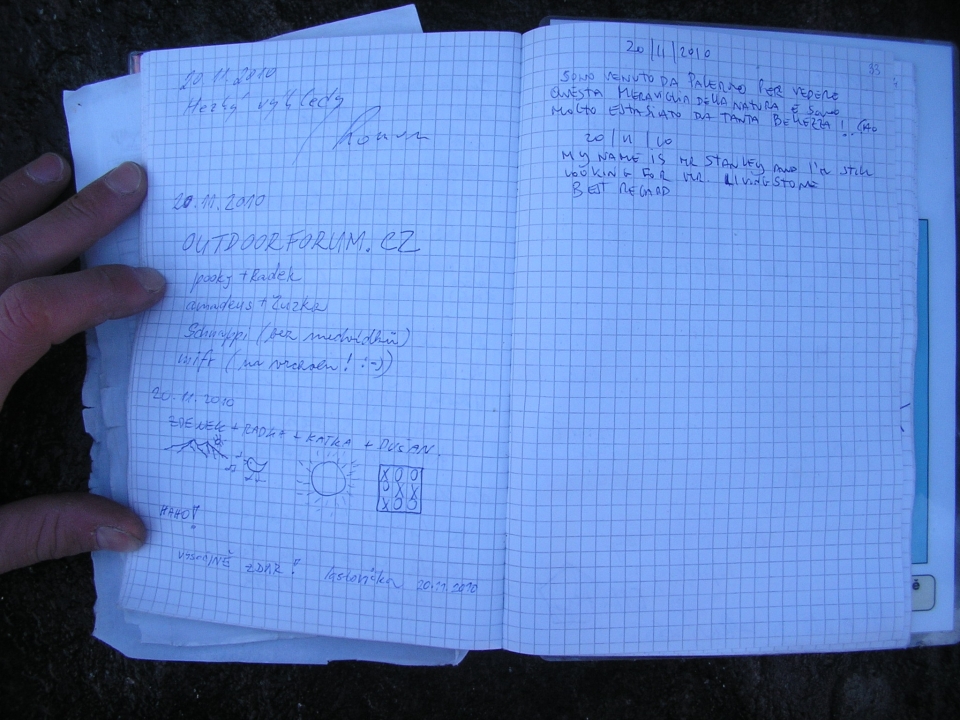 20.11.2010
Hezký výhledy
20.11.2010
OUTDOORFORUM.CZ
pooky + Radek
amadeus + Zuzka
Schnappi (bez medvídků)
mifr (na vrcholu! :-))
20.11.2010
ZDENEK + RADKA + KATKA + DUŠAN.
X O O
O X X
X O O
AHOJ!
ZDAR!
20.11.2010
20/11/2010
33
SONO VENUTO DA PALERMO PER VEDERE
QUESTA MERAVIGLIA DELLA NATURA E SONO
MOLTO ESTASIATO DA TANTA BELLEZZA! CIAO
20/11/10
MY NAME IS MR STANLEY AND I'M STILL
LOOKING FOR MR. LIVINGSTONE
BEST REGARD
ě